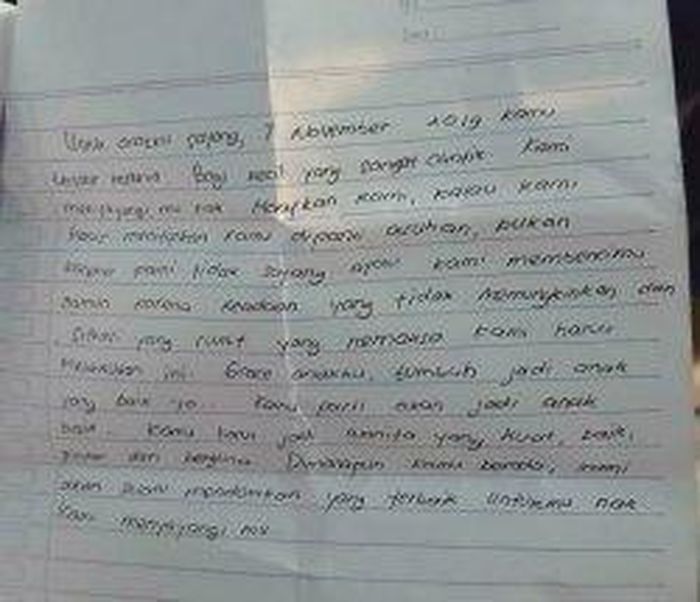 Untuk anakku sayang, 7 November 2019 kamu
Bayi kecil yang sangat cantik kami
menyayangi mu nak Maafkan kami, kalau kami
harus menitipkan kamu dipanti asuhan, bukan
karena kami tidak sayang kami membencimu
namun karena keadaan yang tidak memungkinkan dan
yang rumit yang memaksa kami harus
melakukan ini. Grace anakku, tumbuh jadi anak
yang baik ya.. Kamu pasti akan jadi anak
baik. Kamu harus jadi wanita yang kuat, baik,
pintar dan berguna Dimanapun kamu berada, kami
akan mendoakan yang terbaik untukmu nak
Kami menyayangi mu